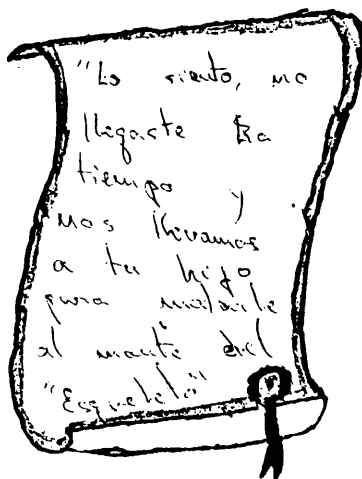 "Lo siento, no
llegaste a
tiempo y
nos llevamos
a tu hijo
para matarle
al monte del
"Esqueleto"